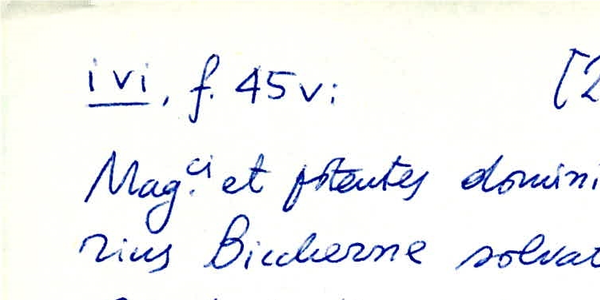 ivi, f. 45v: [2
Mag.ci et potentes domini
rius Biccherne solvat